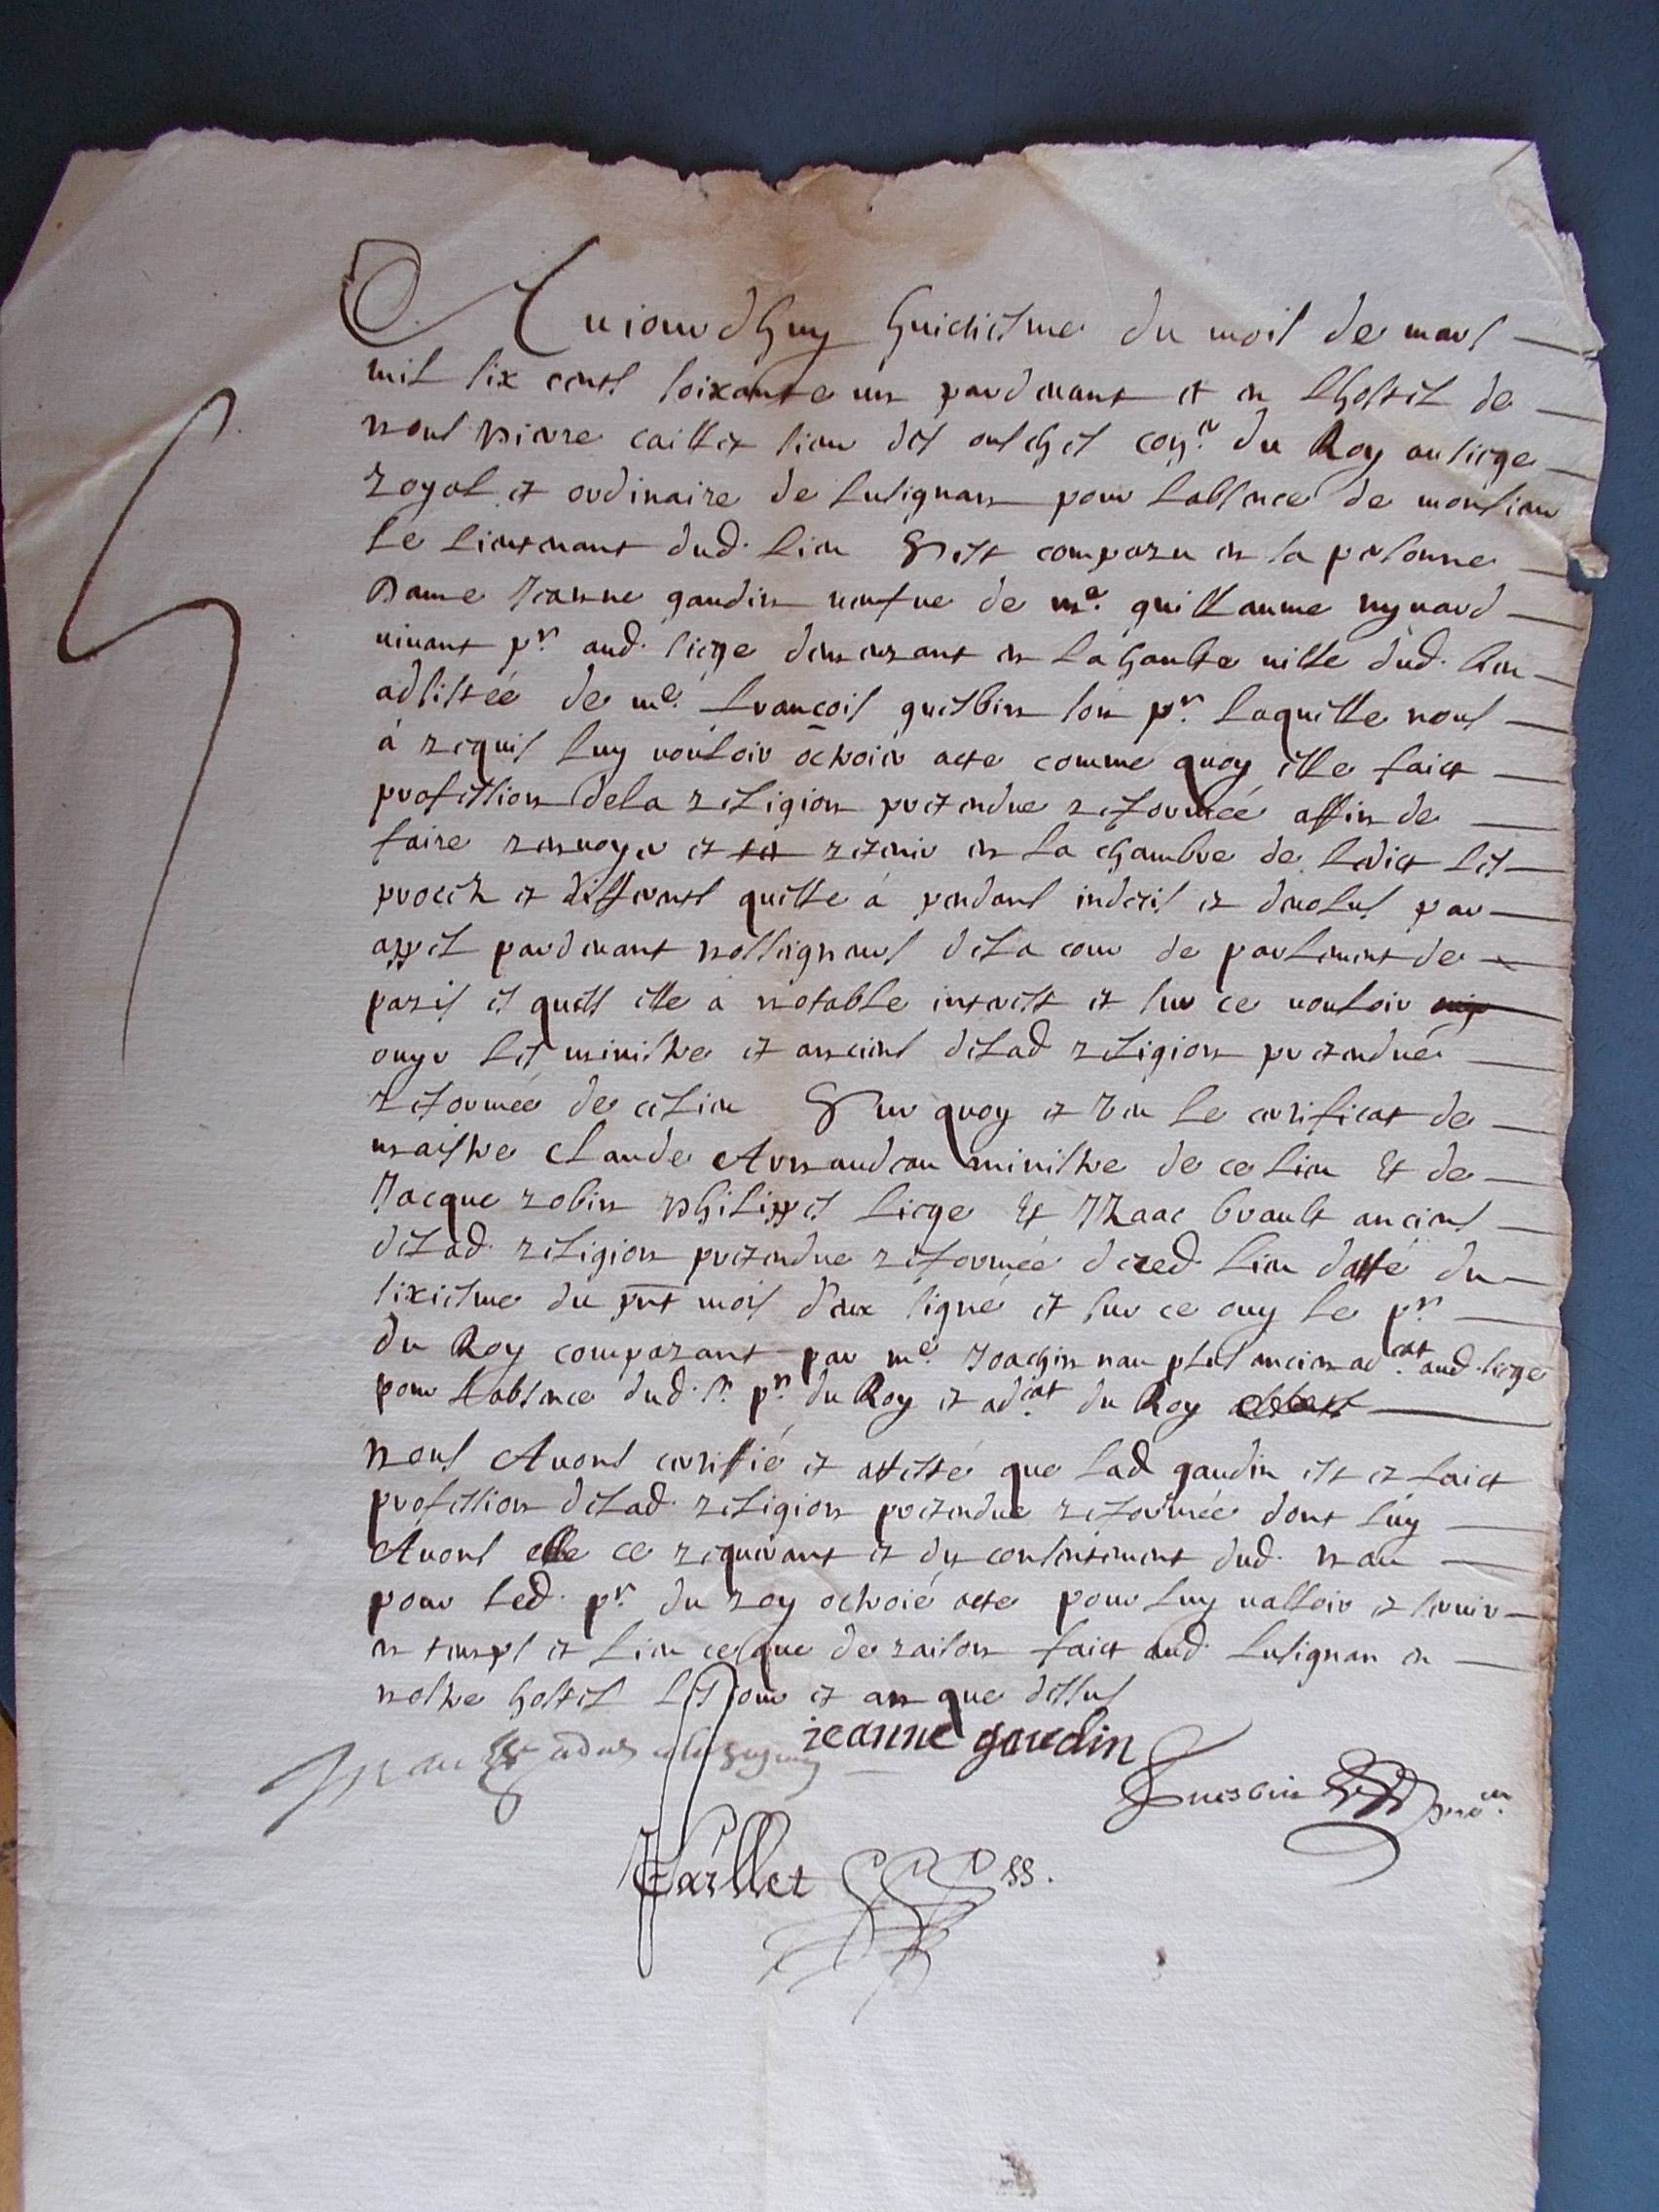 Aujourdhuy huictiesme du mois de mars
mil six cents soixante un pardevant et en lhostel de
nous Pierre caillet sieur des ousches coner du Roy au siege
royal et ordinaire de lusignan pour labsence de monsieur
le lieutenant dud. lieu Sest comparu en sa personne
Dame Jeanne gaudin veufve de me guillaume
vivant pr aud. siege demeurant en la haulte ville dud. lieu
assistée de me. francois guesbin son pr. laquelle nous
à requis luy vouloir octroier acte comme quoy elle faict
profession de la religion pretendue reformée affin de
faire renvoyer et retenir en la chambre de ledict les
procez et differents quelle à pendans indecis et devolus par
appel pardevant nosseigneurs de la cour de parlement de
paris et quels elle a notable interest et sur ce vouloir
ouyr les ministre et anciens de lad religion pretendue
reformée de ce lieu Sur quoy et veu le certificat de
maistre Claude Arnaudeau ministre de ce lieu Et de
Jacque robin Philippes liege Et Izaac brault anciens
de lad. religion pretendue reformée de ced. lieu datté du
sixiesme du pnt mois deux signé et sur ce ouy le pr
du Roy comparant par me. Joachin nau plus ancien adcat. aud. siege
pour labsence dud. sr. pr. du Roy et adcat du Roy
nous Avons certiffié et attesté que lad gaudin est et faict
profession de lad. religion pretendue reformée dont luy
Avons elle ce requerant et du consentement dud. nau
pour led. pr. du roy octroié acte pour luy valloir et servir
en temps et lieu ce que de raison faict aud. lusignan en
nostre hostel les jour et an que dessus
jeanne gaudin
Guesbin
Caillet